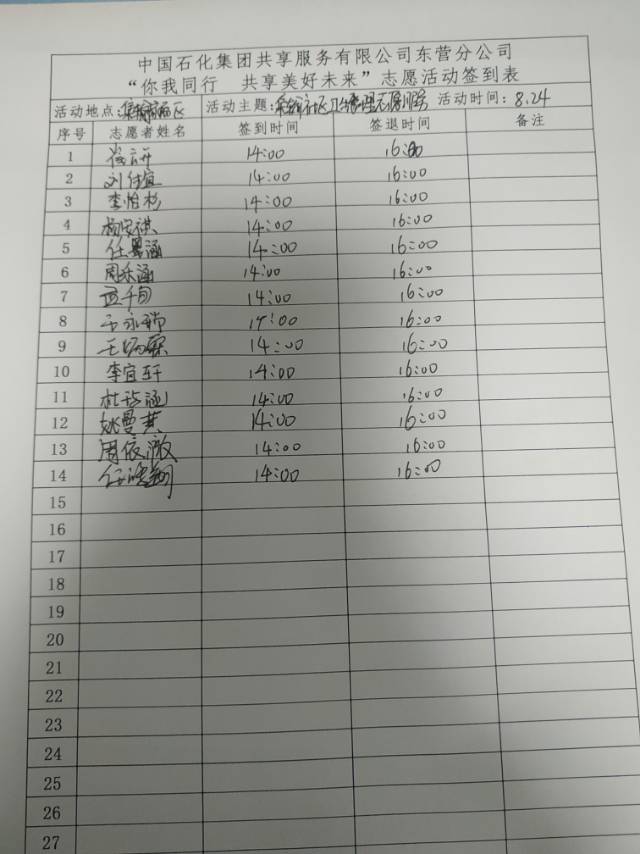 中国石化集团共享服务有限公司东营分公司
“你我同行 共享美好未来”志愿活动签到表
活动地点: 活动主题: 活动时间: 8.24
序号 志愿者姓名 签到时间 签退时间 备注
1 14:00 16:00
2 刘付宜 14:00 16:00
3 李怡杉 14:00 16:00
4 杨安祺 14:00 16:00
5 任 涵 14:00 16:00
6 周乐涵 14:00 16:00
7 孟千旬 14:00 16:00
8 于永瑞 14:00 16:00
9 王 14:00 16:00
10 李宜轩 14:00 16:00
11 杜 涵 14:00 16:00
12 姚曼其 14:00 16:00
13 周依澈 14:00 16:00
14 任 翔 14:00 16:00
15
16
17
18
19
20
21
22
23
24
25
26
27